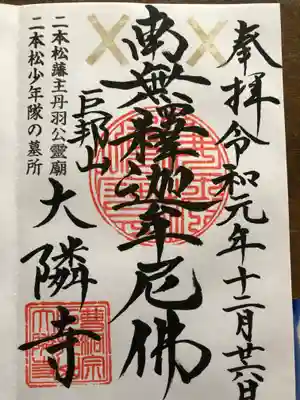 奉拝 令和元年十二月廿六日
南無釋迦牟尼佛
巨邦山
大隣寺
二本松藩主丹羽公霊廟
二本松少年隊の墓所